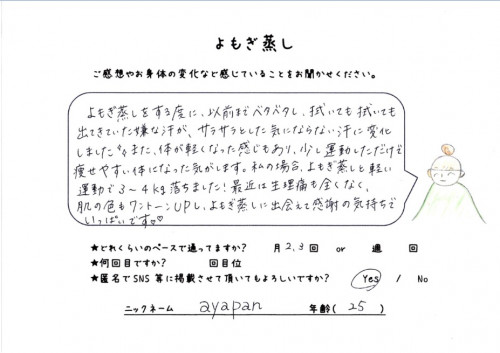 よもぎ蒸し
ご感想やお身体の変化など感じていることをお聞かせください。
よもぎ蒸しをする度に、以前までベタベタし、拭いても拭いても
出てきていた嫌な汗が、サラサラとした気にならない汗に変化
しました。また、体が軽くなった感じもあり、少し運動しただけで
痩せやすい体になった気がします。私の場合、よもぎ蒸しと軽い
運動で3〜4kg落ちました!最近は生理痛も全くなく、
肌の色もワントーンUPし、よもぎ蒸しに出会えて感謝の気持ちで
いっぱいです♡♡
★どれくらいのペースで通ってますか? 月 2,3 回 or 週 回
★何回目ですか? 回目位
★匿名でSNS等に掲載させて頂いてもよろしいですか? Yes / No
ニックネーム ayapan 年齢( 25 )